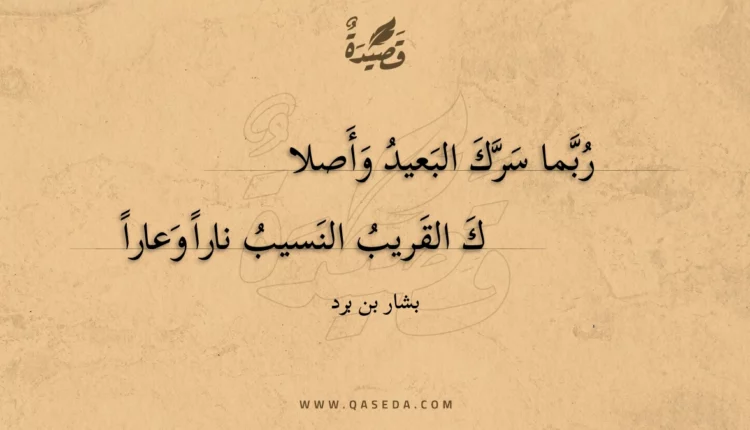 قَصِيْدَةٌ
رُبَّما سَرَّكَ البَعيدُ وَأَصلا
كَ القَريبُ النَسيبُ ناراً وَعاراً
بشار بن برد
WWW.QASEDA.COM